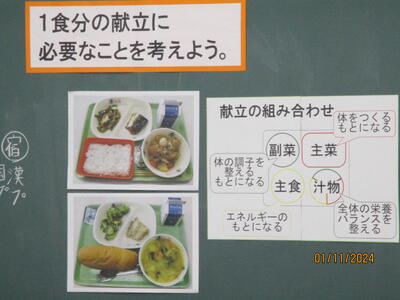 1食分の献立に
必要なことを考えよう。
献立の組み合わせ
体をつくる
もとになる
副菜
主菜
体の調子を
整える
もとになる
主食
汁物
エネルギーの
もとになる
全体の栄養
バランスを
整える
宿
漢
プ
01/11/2024